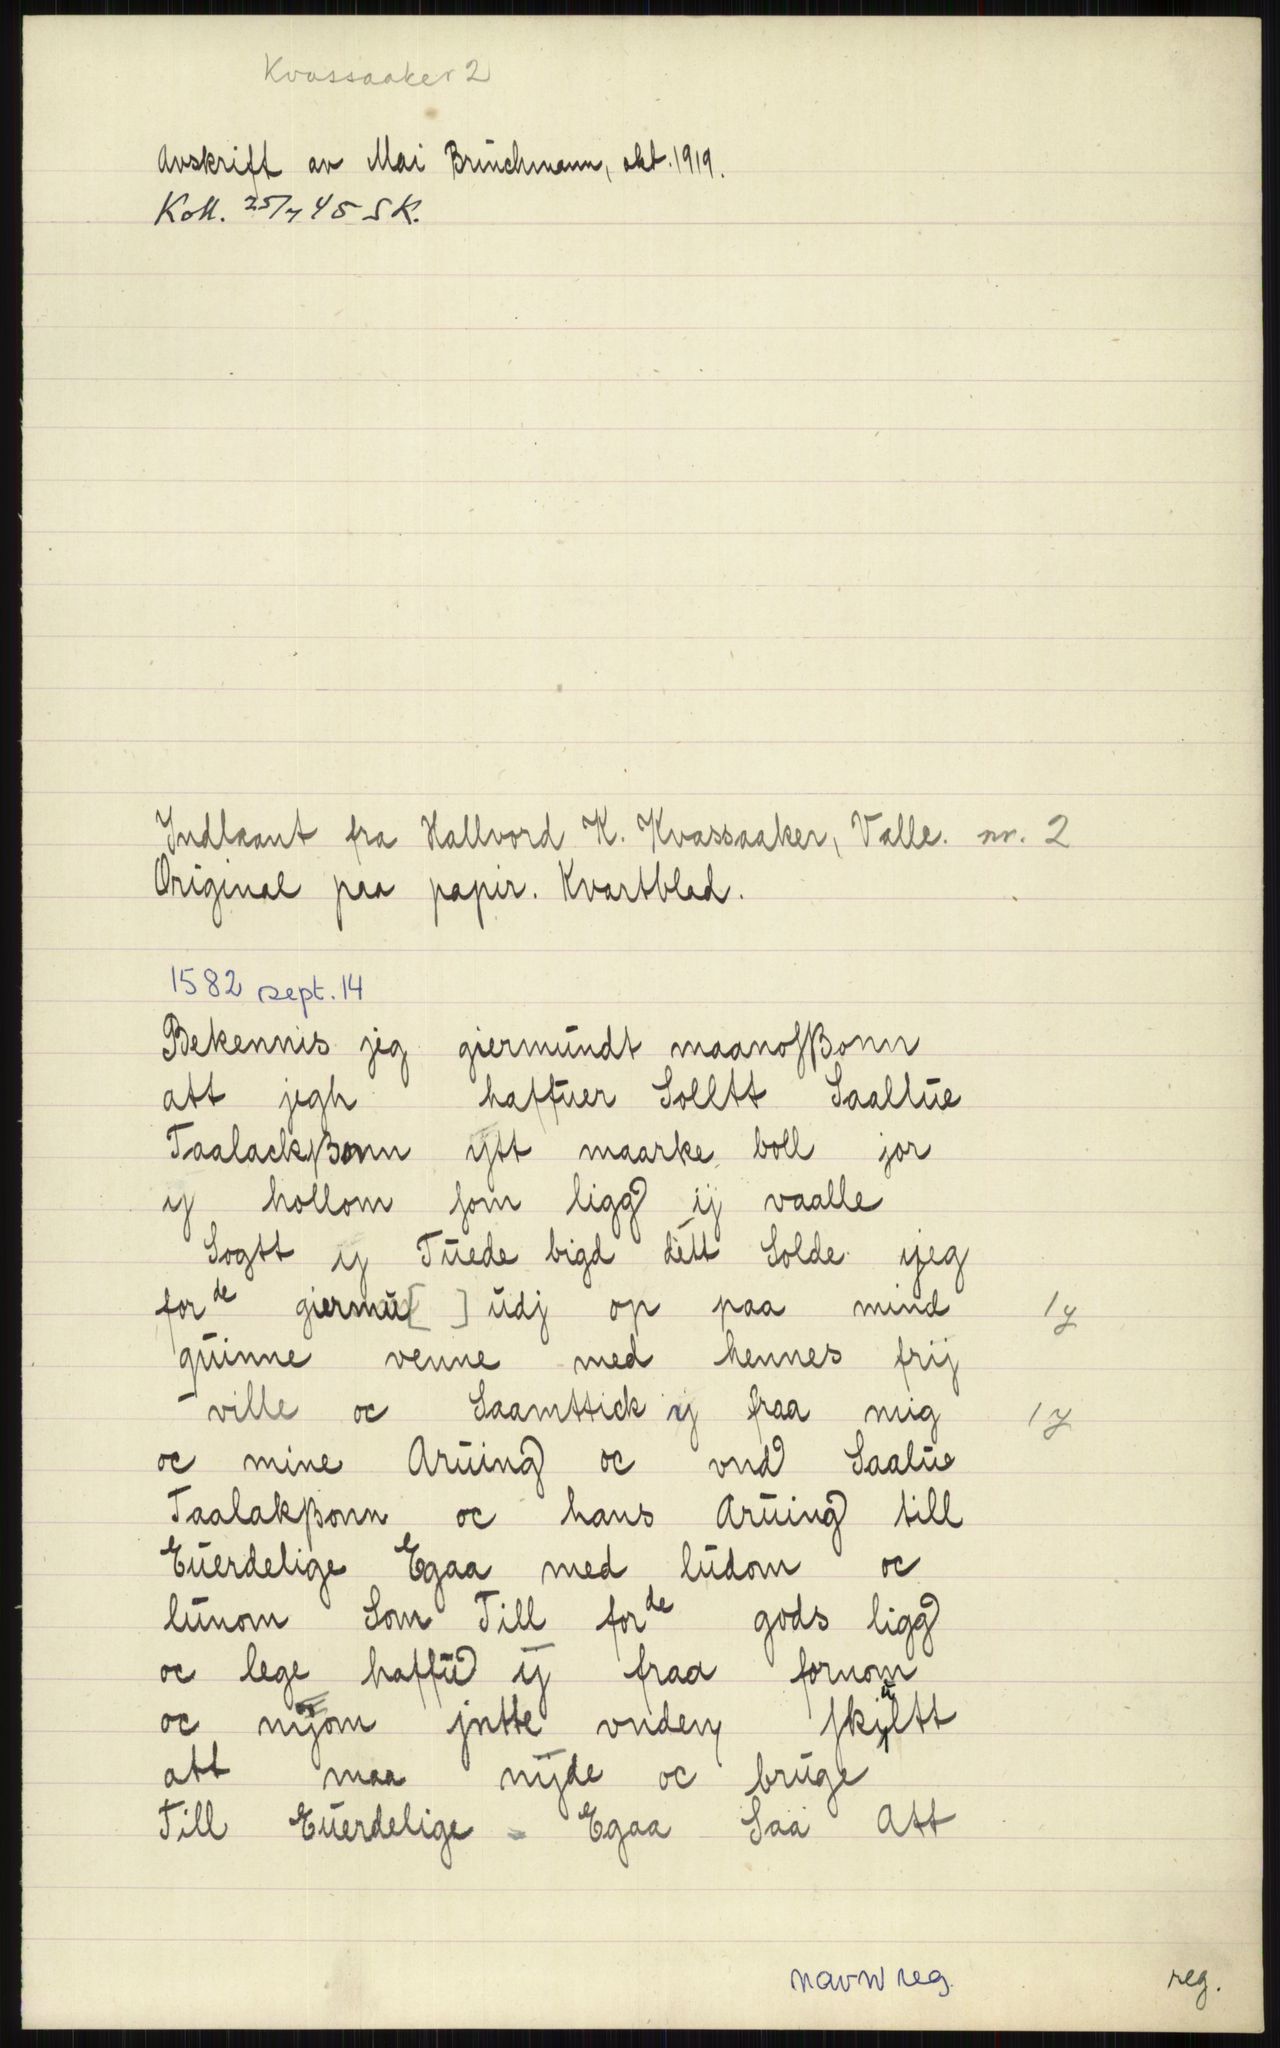 Kvassaaker 2
Avskrift av Mai Brüchmann, okt. 1919.
Koll. 25/7 45 SK.
Indlaant fra Hallvord K. Kvassaaker, Valle. nr. 2
Original paa papir. Kvartblad.
1582 sept. 14
Bekennis jeg giermündt maanoſßonn
att jegh haffüer Solltt Saallüe
Taalackßonn ijtt maarke boll jor
ij hollom ſom ligg ij vaalle
Sogtt ij Tüede bigd dett Solde ijeg
for de giermü[ ] üdj op paa mind 1 y
qüinne venne med hennes frij
ville oc Saamttick ij fraa mig 1 y
oc mine Arüing oc vnd Saalüe
Taalakßonn oc hans Arüing till
Eüerdelige Egaa med lüdom oc
lünom Som Till for de gods ligg
oc lege haffü ij fraa fornom
oc nijom jntte vnden ſkiltt
att maa nijde oc brüge
Till Eüerdelige Egaa Saa Att
navnreg. reg.